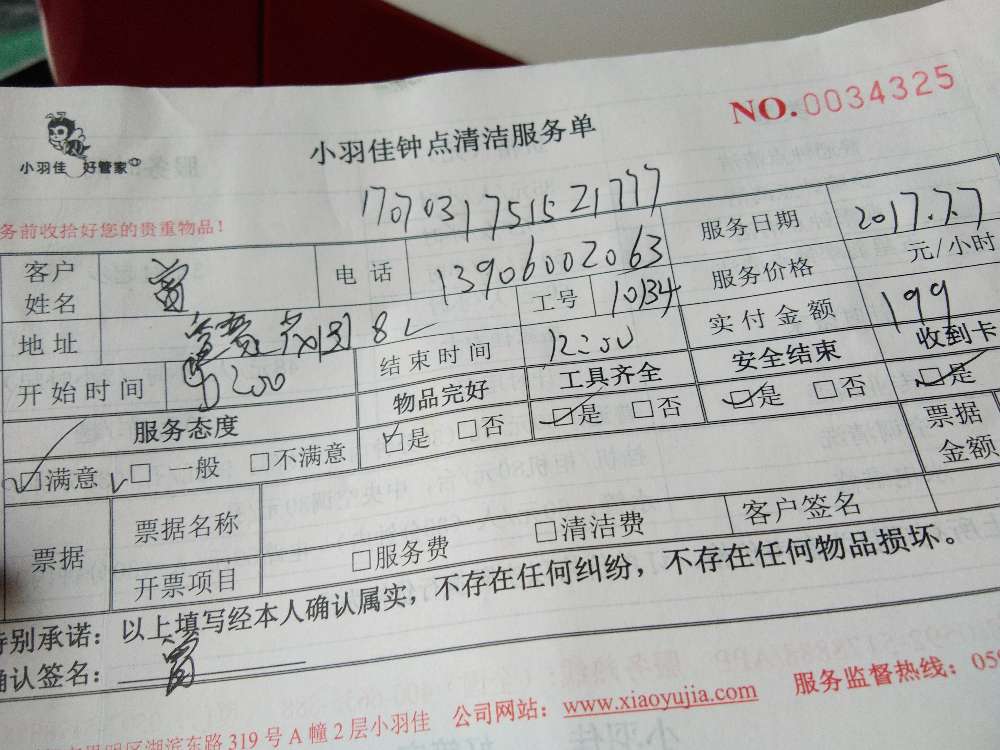 NO.0034325
小羽佳 好管家
小羽佳钟点清洁服务单
1707031751521777
务前收拾好您的贵重物品！
客户姓名 电话 13906002063 服务日期 2017.7.7
地址 8 工号 10134 服务价格 元/小时
开始时间 结束时间 12:00 实付金额 199
服务态度 物品完好 工具齐全 安全结束 收到卡
□满意 □一般 □不满意 □是 □否 □是 □否 □是 □否 □是
票据 票据名称 票据金额
开票项目 □服务费 □清洁费 客户签名
特别承诺：以上填写经本人确认属实，不存在任何纠纷，不存在任何物品损坏。
确认签名：
明区湖滨东路319号A幢2层小羽佳 公司网站：www.xiaoyujia.com 服务监督热线：059